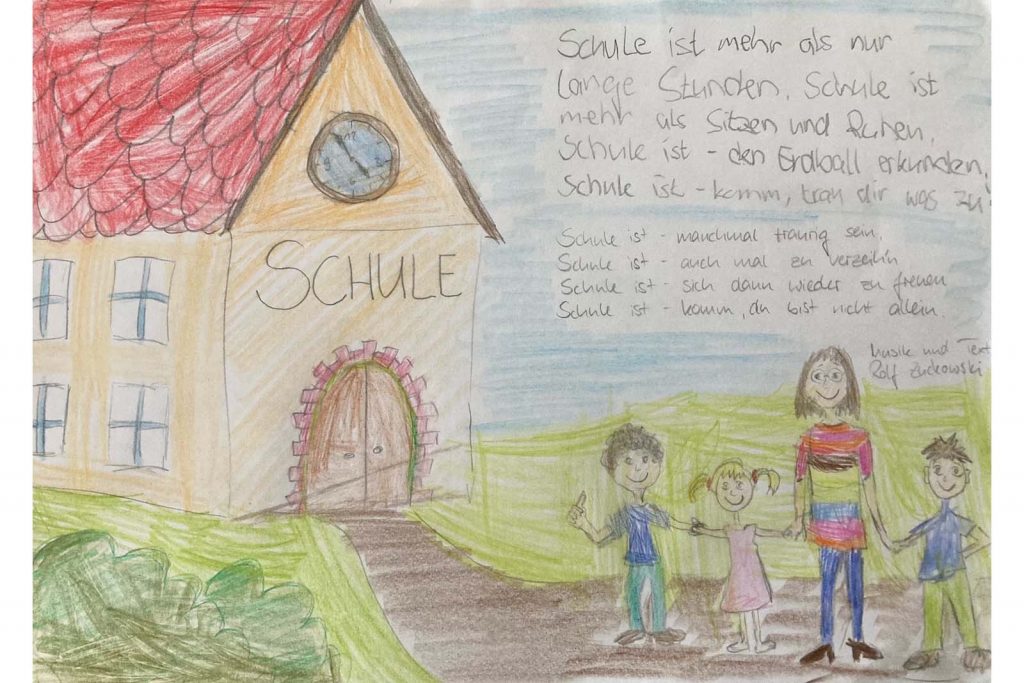 Schule ist mehr als nur
lange Stunden. Schule ist
mehr als Sitzen und Ruhen,
Schule ist - den Erdball erkunden,
Schule ist - komm, trau dir was zu!
Schule ist - manchmal traurig sein,
Schule ist - auch mal zu verzeih'n
Schule ist - sich dann wieder zu freuen
Schule ist - komm, du bist nicht allein.
Musik und Text
Rolf Zuckowski
12
SCHULE